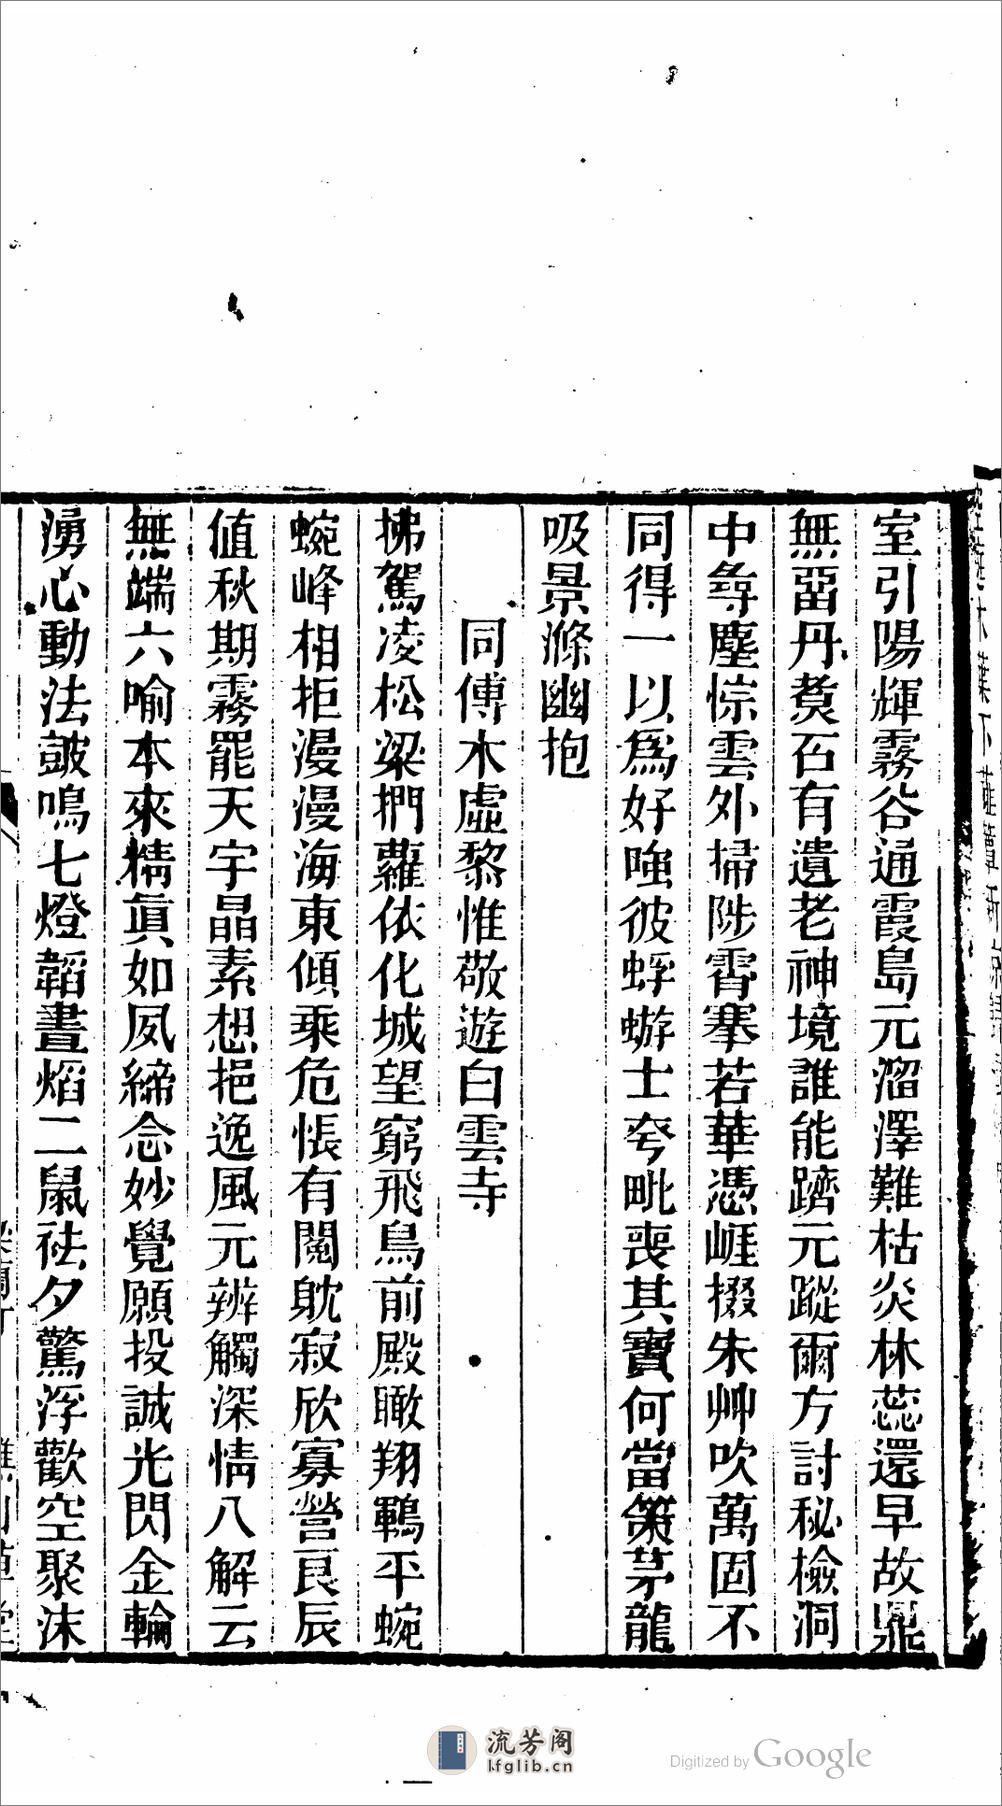 室引陽輝霧谷通霞島元溜澤難枯炎林蕊還早故鼎
無畱丹煑石有遺老神境誰能躋元蹤爾方討秘檢洞
中尋塵悰雲外掃陟霄搴若華憑崕掇朱艸吹萬固不
同得一以爲好嗤彼蜉蝣士夸毗喪其寶何當策茅龍
吸景滌幽抱
同傅木虛黎惟敬遊白雲寺
拂駕凌松梁捫蘿依化城望窮飛鳥前殿瞰翔鶤平蜿
蜿峰相拒漫漫海東傾乘危悵有闋躭寂欣寡營良辰
值秋期霧罷天宇晶素想挹逸風元辨觸深情八解云
無端六喻本來精眞如夙締念妙覺願投誠光閃金輪
湧心動法皷鳴七燈韜晝焰二鼠祛夕驚浮歡空聚沫
流芳阁
lfglib.cn
Digitized by Google